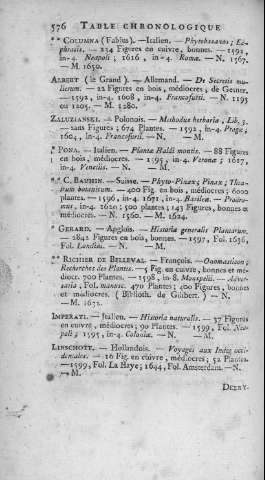 576 TABLE CHRONOLOGIQUE
** COLUMNA (Fabius). — Italien. — Phytobasanos; Ec-
phrasis. — 234 Figures en cuivre, bonnes. — 1592,
in-4. Neapoli; 1616, in-4. Romæ. — N. 1567.
— M. 1650.
ALBERT (le Grand). — Allemand. — De Secretis mu-
lierum. — 22 Figures en bois, médiocres; de Gesner.
— 1592, in-4. 1608, in-4. Francofurti. — N. 1193
ou 1205. — M. 1280.
ZALUZIANSKI. — Polonois. — Methodus herbaria, Lib. 3.
— sans Figures; 674 Plantes. — 1592, in-4. Pragæ;
1604, in-4. Francofurti. — N. — M.
* PONA. — Italien. — Planta Baldi montis. — 88 Figures
en bois, médiocres. — 1595, in-4. Veronæ; 1617,
in-4. Venetiis. — N. — M.
** C. BAUHIN. — Suisse. — Phyto-Pinax; Pinax; Thea-
trum botanicum. — 400 Fig. en bois, médiocres; 6000
plantes. — 1596, in-4. 1671, in-4. Basileæ. — Prodro-
mus, in-4. 1620; 500 plantes; 143 Figures, bonnes et
médiocres. — N. 1560. — M. 1624.
* GERARD. — Anglois. — Historia generalis Plantarum.
— 2842 Figures en bois, bonnes. — 1597, Fol. 1636,
Fol. Londini. — N. — M.
** RICHER DE BELLEVAL. — François. — Onomasticon;
Recherches des Plantes. — 5 Fig. en cuivre, bonnes et mé-
diocr. 700 Plantes. — 1598, in-8. Monspelii. — Adver-
saria, Fol. manosc. 470 Plantes; 400 Figures, bonnes
et médiocres. (Biblioth. de Gilibert.) — N.
— M. 1632.
IMPERATI. — Italien. — Historia naturalis. — 37 Figures
en cuivre, médiocres; 90 Plantes. — 1599, Fol. Nea-
poli; 1595, in-4. Coloniæ. — N. — M.
LINSCHOTT. — Hollandois. — Voyages aux Indes occi-
dentales. — 16 Fig. en cuivre, médiocres; 52 Plantes.
— 1599, Fol. La Haye; 1644, Fol. Amsterdam. — N.
— M.